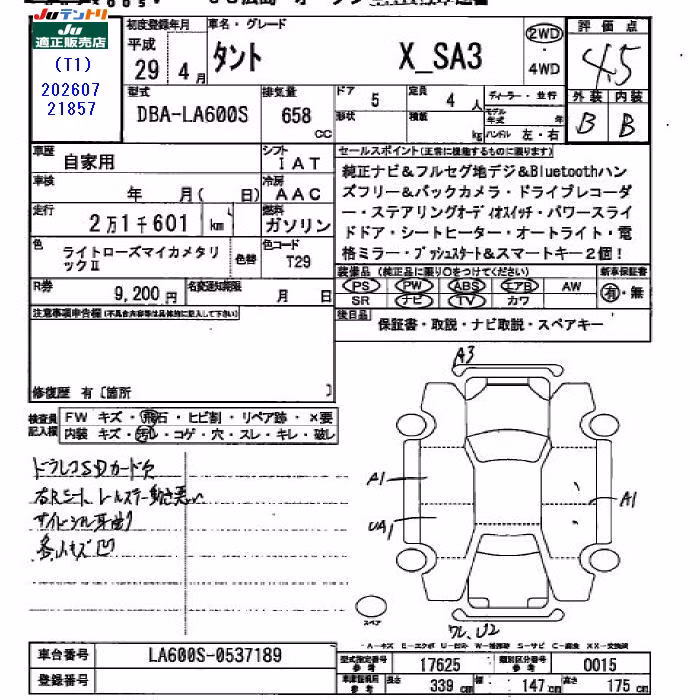 JUテントリ
JU
適正販売店
(T1)
202607
21857
初度登録年月
平成
29 4月
車名・グレード
タント X_SA3
2WD
4WD
評価点
4.5
外装 内装
B B
型式
DBA-LA600S
排気量
658 cc
ドア
5
定員
4 人
ディーラー・並行
形状
積載 kg
モデル年式 年
ハンドル 左・右
車歴
自家用
シフト
IAT
車検
年 月( 日)
冷房
AAC
走行
2万1千601 km
燃料
ガソリン
色
ライトローズマイカメタリックⅡ
色替
色コード
T29
R券
9,200円
名変通知期限
月 日
セールスポイント(正常に機能するものに限ります)
純正ナビ&フルセグ地デジ&Bluetoothハン
ズフリー&バックカメラ・ドライブレコーダ
ー・ステアリングオーディオスイッチ・パワースライ
ドドア・シートヒーター・オートライト・電
格ミラー・プッシュスタート&スマートキー2個!
装備品(純正品に限り○をつけてください)
新車保証書
PS PW ABS エアB AW
SR ナビ TV カワ
有・無
後日品
保証書・取説・ナビ取説・スペアキー
注意事項申告欄(不具合内容等は具体的に記入して下さい)
修復歴 有〔箇所 〕
検査員記入欄
FW キズ・飛石・ヒビ割・リペア跡・×要
内装 キズ・汚レ・コゲ・穴・スレ・キレ・破レ
ドラレコSDカード欠
右Rシートレールステー動き悪い
サイドシル耳曲り
多小キズ凹
A3
A1
UA1
A1
スペア
ワレ、U2
A-キズ E-エクボ U-凹 W-補修跡 S-サビ C-腐食 XX-交換済
車台番号
LA600S-0537189
登録番号
型式指定番号 参考
17625
類別区分番号 参考
0015
車検証記載 参考
長さ 339 cm
幅 147 cm
高さ 175 cm